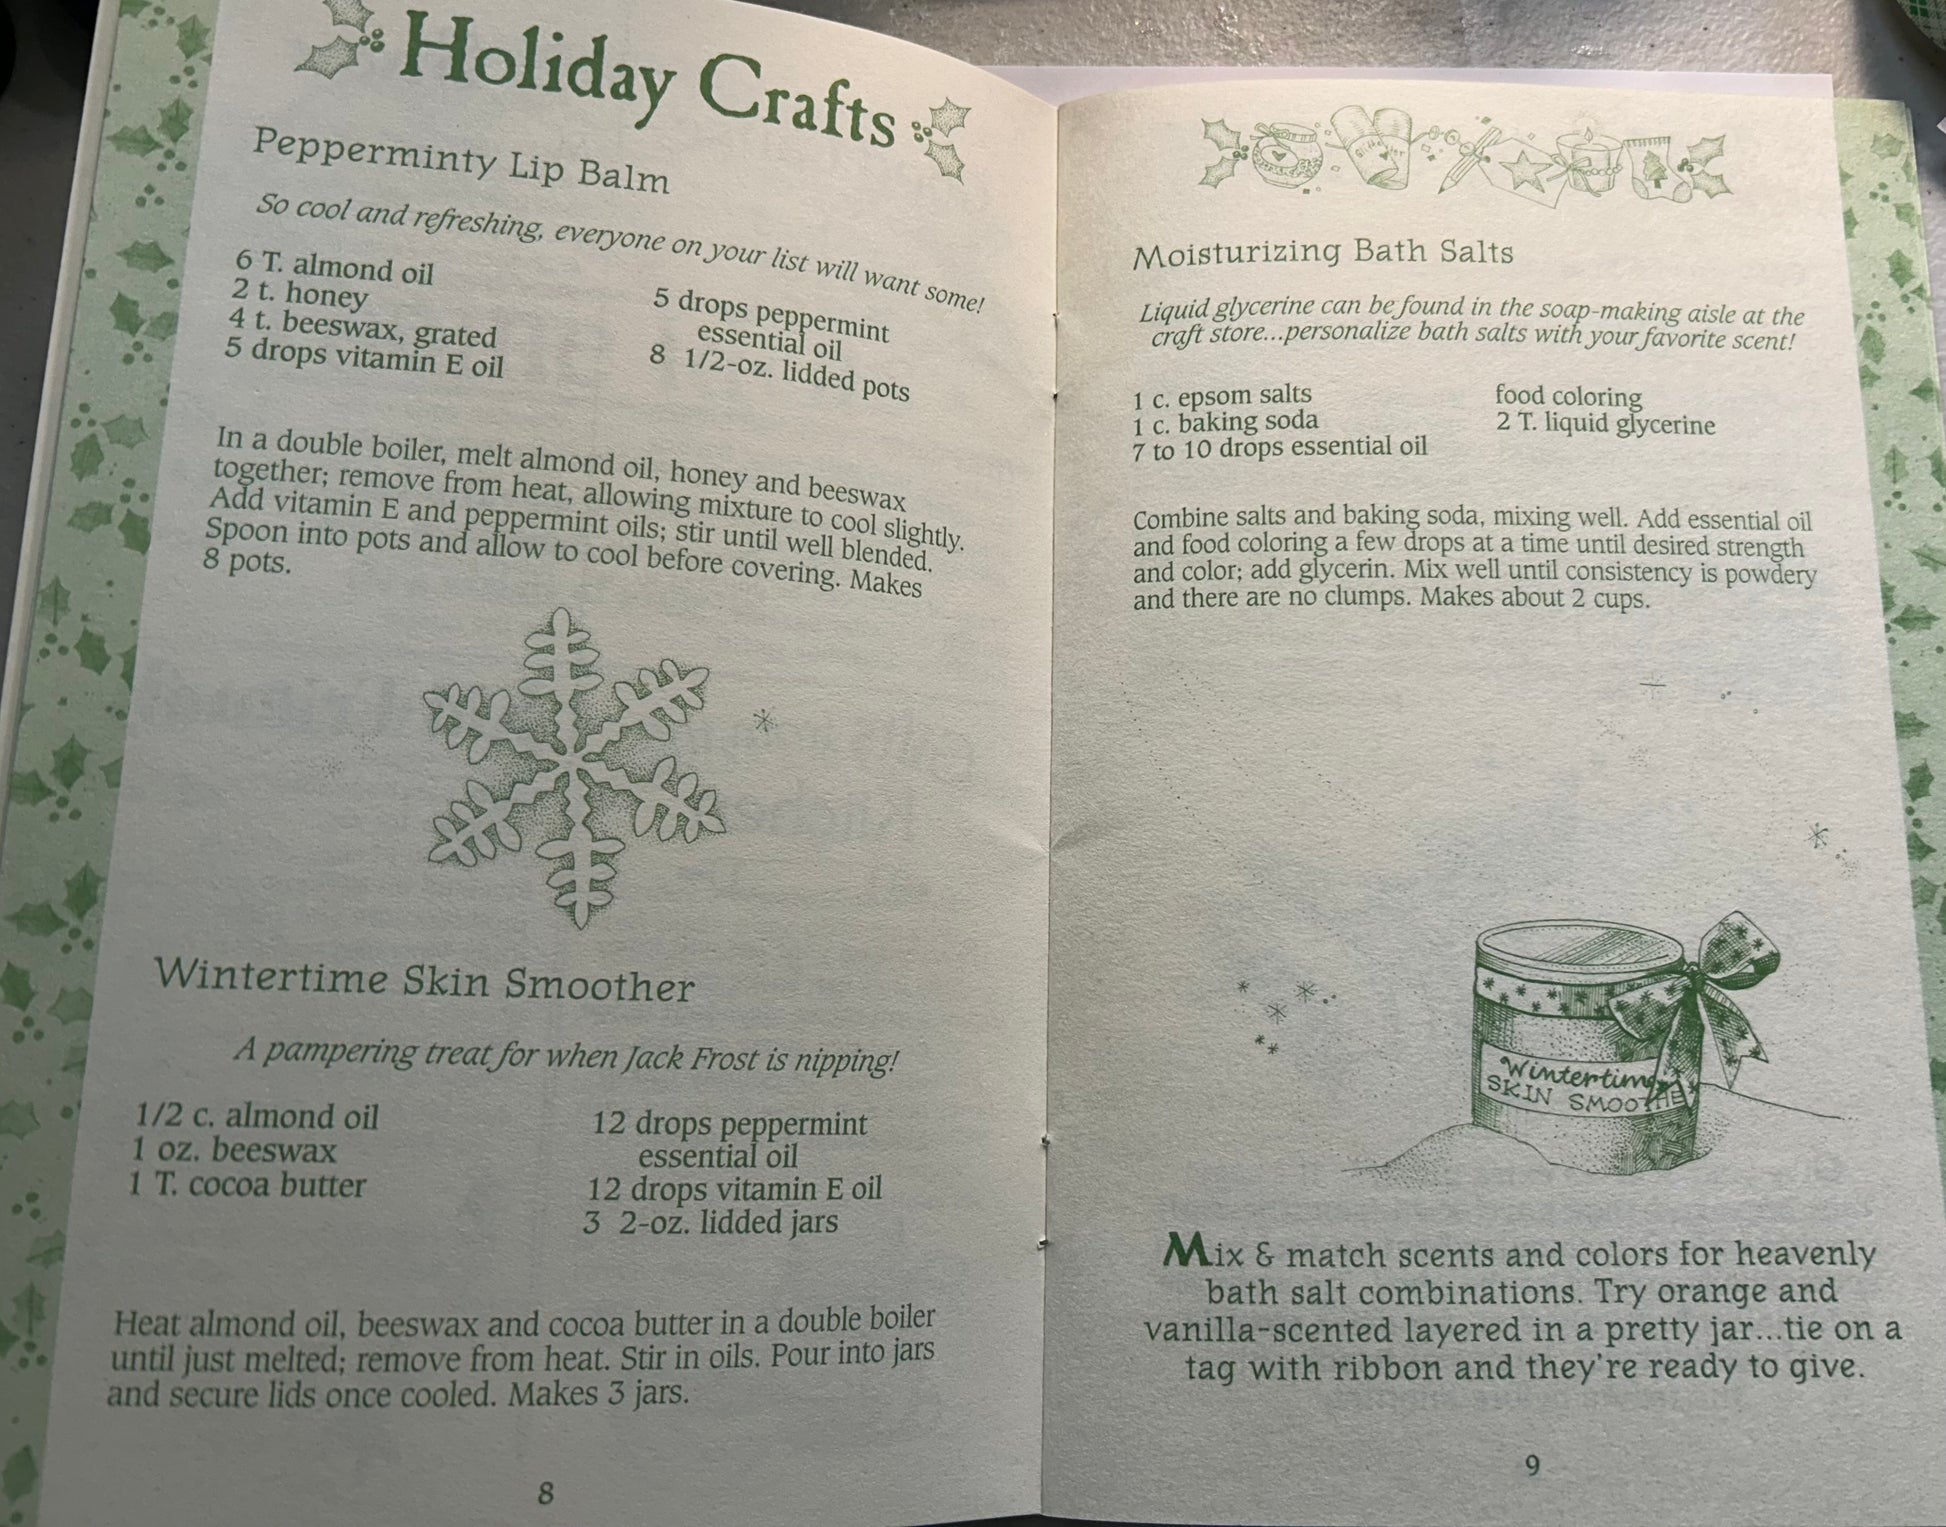 Holiday Crafts
Pepperminty Lip Balm
So cool and refreshing, everyone on your list will want some!
6 T. almond oil
2 t. honey
4 t. beeswax, grated
5 drops vitamin E oil
5 drops peppermint
essential oil
8 1/2-oz. lidded pots
In a double boiler, melt almond oil, honey and beeswax
together; remove from heat, allowing mixture to cool slightly.
Add vitamin E and peppermint oils; stir until well blended.
Spoon into pots and allow to cool before covering. Makes
8 pots.
Wintertime Skin Smoother
A pampering treat for when Jack Frost is nipping!
1/2 c. almond oil
1 oz. beeswax
1 T. cocoa butter
12 drops peppermint
essential oil
12 drops vitamin E oil
3 2-oz. lidded jars
Heat almond oil, beeswax and cocoa butter in a double boiler
until just melted; remove from heat. Stir in oils. Pour into jars
and secure lids once cooled. Makes 3 jars.
8
Moisturizing Bath Salts
Liquid glycerine can be found in the soap-making aisle at the
craft store...personalize bath salts with your favorite scent!
1 c. epsom salts
1 c. baking soda
7 to 10 drops essential oil
food coloring
2 T. liquid glycerine
Combine salts and baking soda, mixing well. Add essential oil
and food coloring a few drops at a time until desired strength
and color; add glycerin. Mix well until consistency is powdery
and there are no clumps. Makes about 2 cups.
Wintertime
SKIN SMOOTHE
Mix & match scents and colors for heavenly
bath salt combinations. Try orange and
vanilla-scented layered in a pretty jar...tie on a
tag with ribbon and they're ready to give.
9